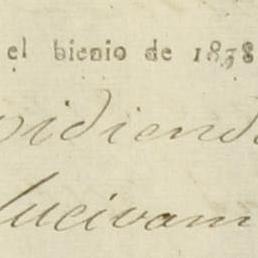 el bienio de 1838
vidiend
lucivam